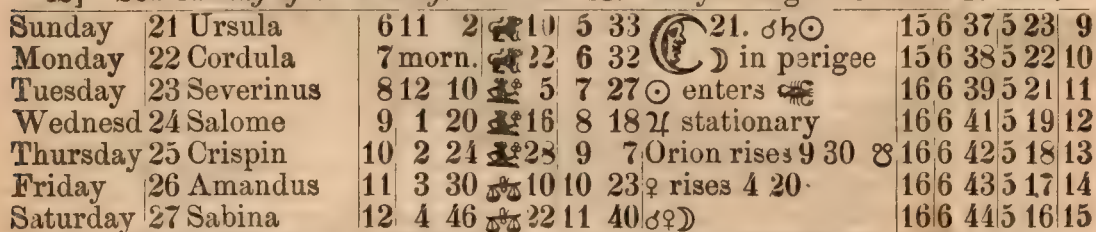 Sunday 21 Ursula 6 11 2 10 5 33 21. ☌♄☉ 15 6 37 5 23 9
Monday 22 Cordula 7 morn. 22 6 32 ☽ in perigee 15 6 38 5 22 10
Tuesday 23 Severinus 8 12 10 5 7 27 ☉ enters ♏ 16 6 39 5 21 11
Wednesd 24 Salome 9 1 20 16 8 18 ♃ stationary 16 6 41 5 19 12
Thursday 25 Crispin 10 2 24 28 9 7 Orion rises 9 30 ☋ 16 6 42 5 18 13
Friday 26 Amandus 11 3 30 ♎ 10 10 23 ♀ rises 4 20 16 6 43 5 17 14
Saturday 27 Sabina 12 4 46 ♎ 22 11 40 ☌♀☽ 16 6 44 5 16 15